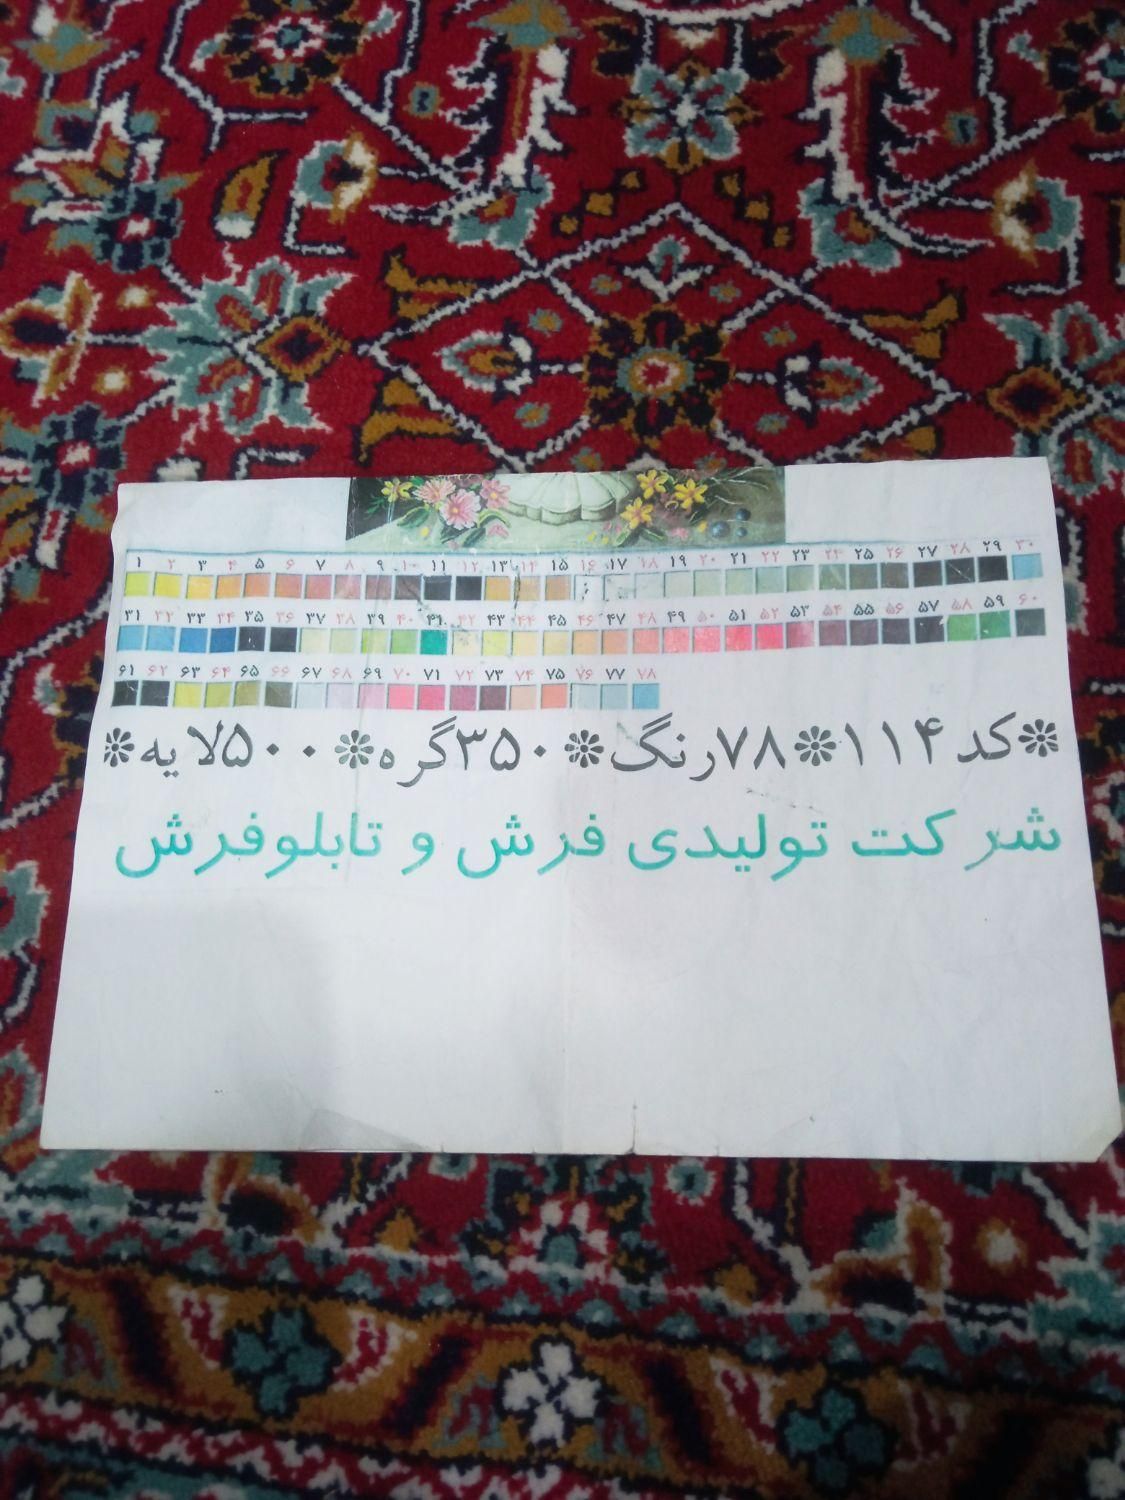 ۱ ۲ ۳ ۴ ۵ ۶ ۷ ۸ ۹ ۱۰ ۱۱ ۱۲ ۱۳ ۱۴ ۱۵ ۱۶ ۱۷ ۱۸ ۱۹ ۲۰ ۲۱ ۲۲ ۲۳ ۲۴ ۲۵ ۲۶ ۲۷ ۲۸ ۲۹ ۳۰
۳۱ ۳۲ ۳۳ ۳۴ ۳۵ ۳۶ ۳۷ ۳۸ ۳۹ ۴۰ ۴۱ ۴۲ ۴۳ ۴۴ ۴۵ ۴۶ ۴۷ ۴۸ ۴۹ ۵۰ ۵۱ ۵۲ ۵۳ ۵۴ ۵۵ ۵۶ ۵۷ ۵۸ ۵۹ ۶۰
۶۱ ۶۲ ۶۳ ۶۴ ۶۵ ۶۶ ۶۷ ۶۸ ۶۹ ۷۰ ۷۱ ۷۲ ۷۳ ۷۴ ۷۵ ۷۶ ۷۷ ۷۸
❊کد۱۱۴❊۷۸رنگ❊۳۵۰گره❊۵۰۰لایه❊
شرکت تولیدی فرش و تابلوفرش